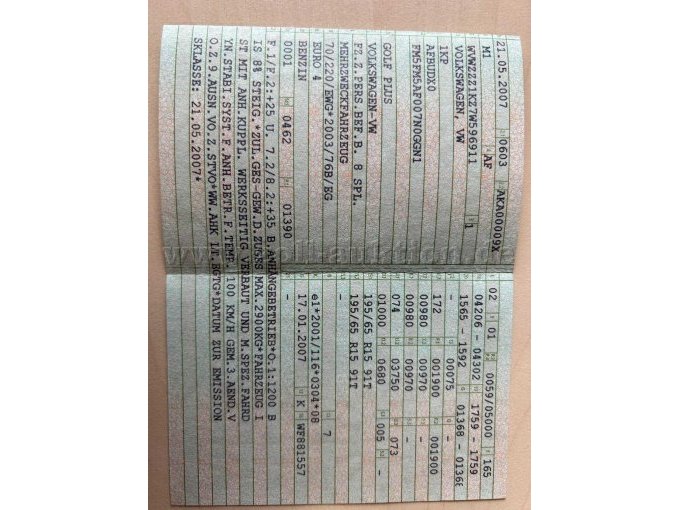 21.05.2007 0603 AKA00009X
M1 AF
WVWZZZ1KZ7W596911 1
VOLKSWAGEN, VW
1KP
AFBUDX0
FM5FM5AF007N0GGN1
GOLF PLUS
VOLKSWAGEN-VW
FZ.Z.PERS.BEF.B. 8 SPL.
MEHRZWECKFAHRZEUG
70/220/EWG*2003/76B/EG
EURO 4
BENZIN
0001 0462 01390
02 01 0059/05000 165
04206 - 04302 1759 - 1759
1565 - 1592 01368 - 01368
- 00075 -
172 001900 001900
00980 00970 -
00980 00970 -
074 03750 073
01000 0680 005 -
195/65 R15 91T
195/65 R15 91T
-
- 7
e1*2001/116*0304*08
17.01.2007 K WF881557
-
F.1/F.2:+25 U. 7.2/8.2:+35 B.ANHÄNGEBETRIEB*O.1:1200 B
IS 8% STEIG.*ZUL.GES-GEW.D.ZUGES MAX.2900KG*FAHRZEUG I
ST MIT ANH.KUPPL. WERKSSEITIG VERBAUT UND M.SPEZ.FAHRD
YN.STABI.SYST.F.ANH.BETR.F.TEMP. 100 KM/H GEM.3.AEND.V
O.Z.9.AUSN.VO.Z.STVO*WW.AHK LT.EGTG*DATUM ZUR EMISSION
SKLASSE: 21.05.2007*